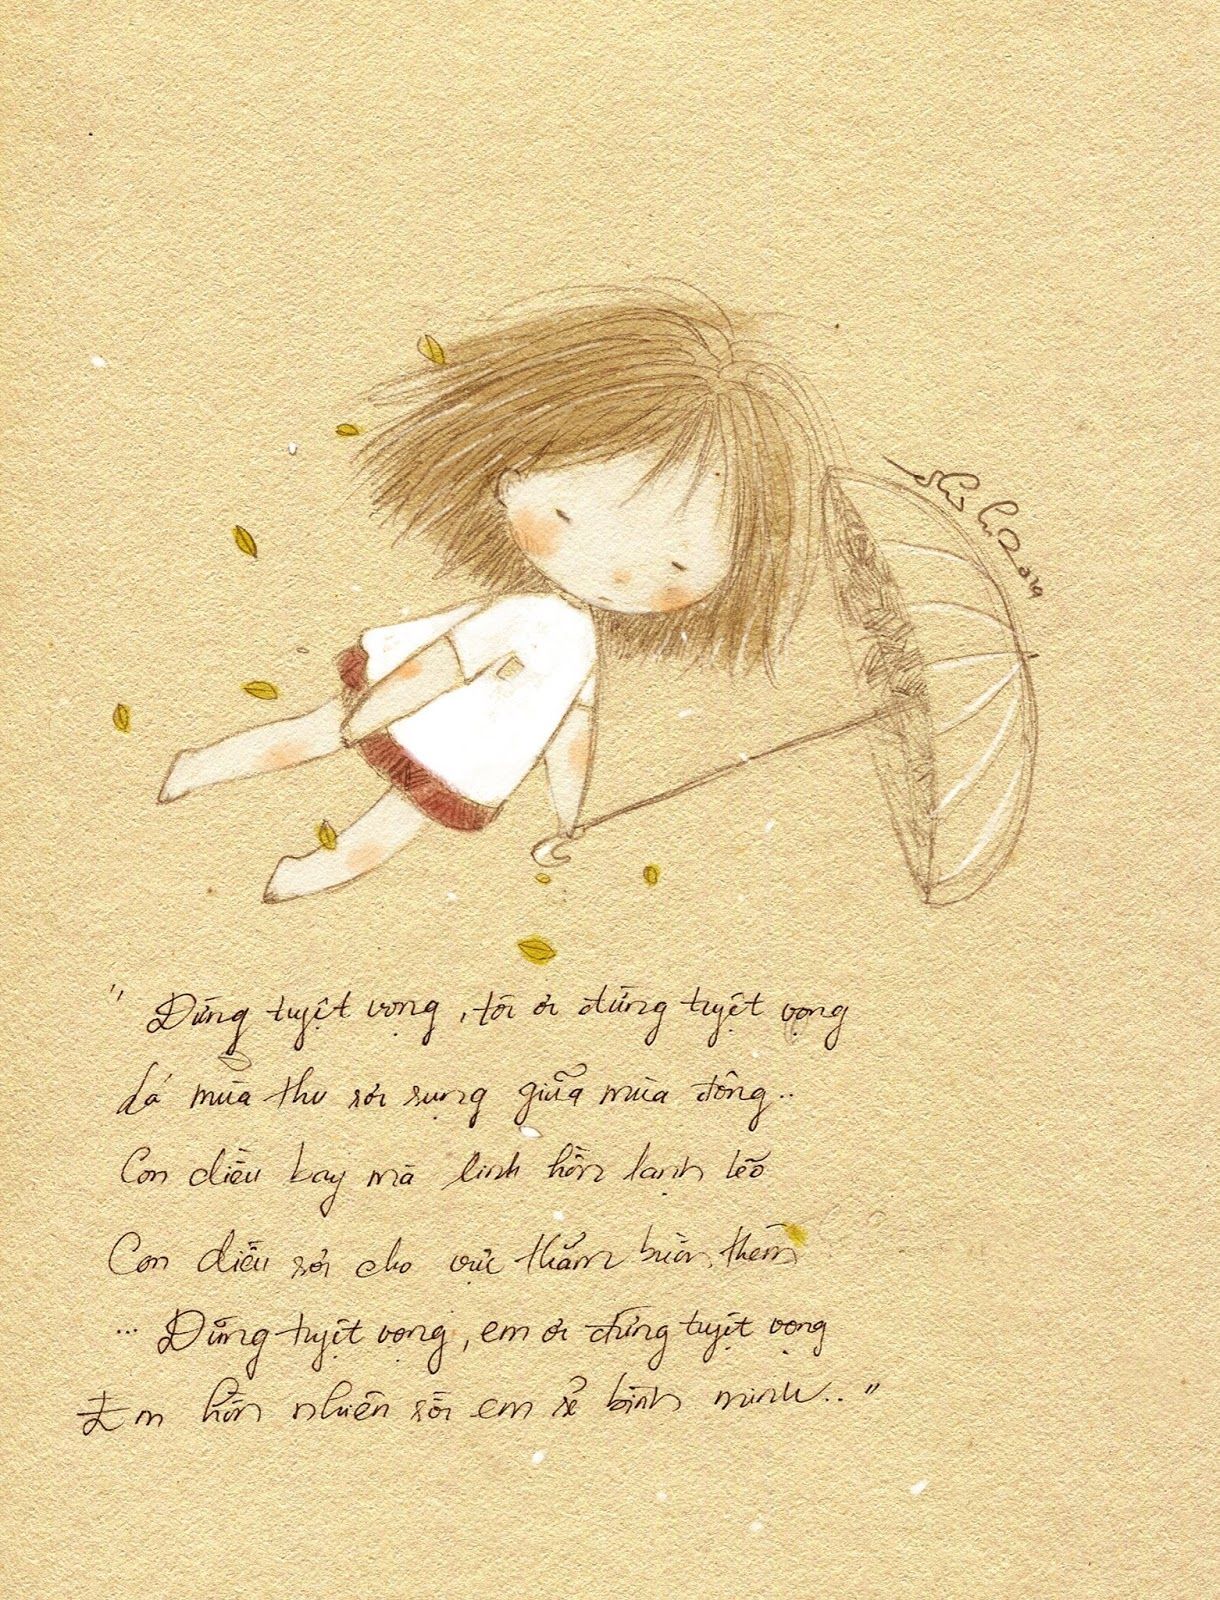 " Đừng tuyệt vọng, tôi ơi đừng tuyệt vọng
Lá mùa thu rơi rụng giữa mùa đông..
Con diều bay mà linh hồn lạnh lẽo
Con diều rơi cho vực thẳm buồn thêm
... Đừng tuyệt vọng, em ơi đừng tuyệt vọng
Em hồn nhiên rồi em sẽ bình minh.. "